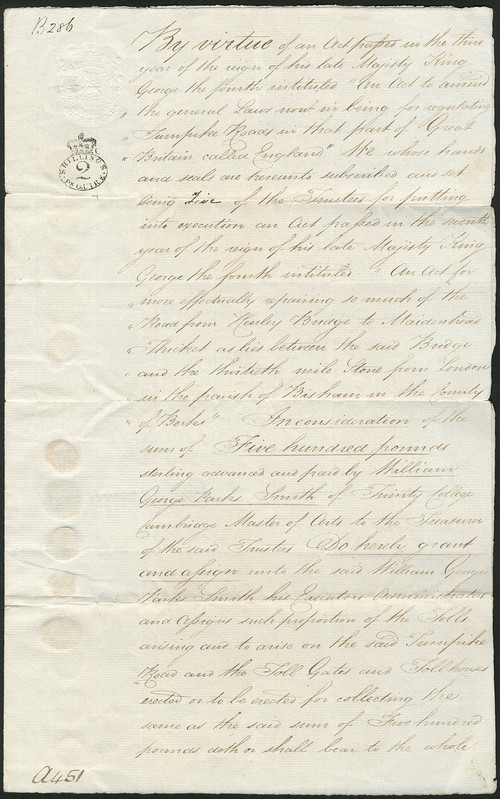 B286
By virtue of an Act passed in the third
year of the reign of his late Majesty King
George the fourth intituled "An Act to amend
"the general Laws now in being for regulating
"Turnpike Roads in that part of Great
"Britain called England" We whose hands
and seals are hereunto subscribed and set
being Five of the Trustees for putting
into execution an Act passed in the seventh
year of the reign of his late Majesty King
George the fourth intituled "An Act for
"more effectually repairing so much of the
"Road from Henley Bridge to Maidenhead
"Thicket as lies between the said Bridge
"and the thirtieth mile Stone from London
"in the parish of Bisham in the County
"of Berks" In consideration of the
sum of Five hundred pounds
sterling advanced and paid by William
George Parks Smith of Trinity College
Cambridge Master of Arts to the Treasurer
of the said Trustees Do hereby grant
and assign unto the said William George
Parks Smith his Executors Administrators
and Assigns such proportion of the Tolls
arising and to arise on the said Turnpike
Road and the Toll Gates and Tollhouses
erected or to be erected for collecting the
same as the said sum of Five hundred
pounds doth or shall bear to the whole
SHILLINGS
2
A451